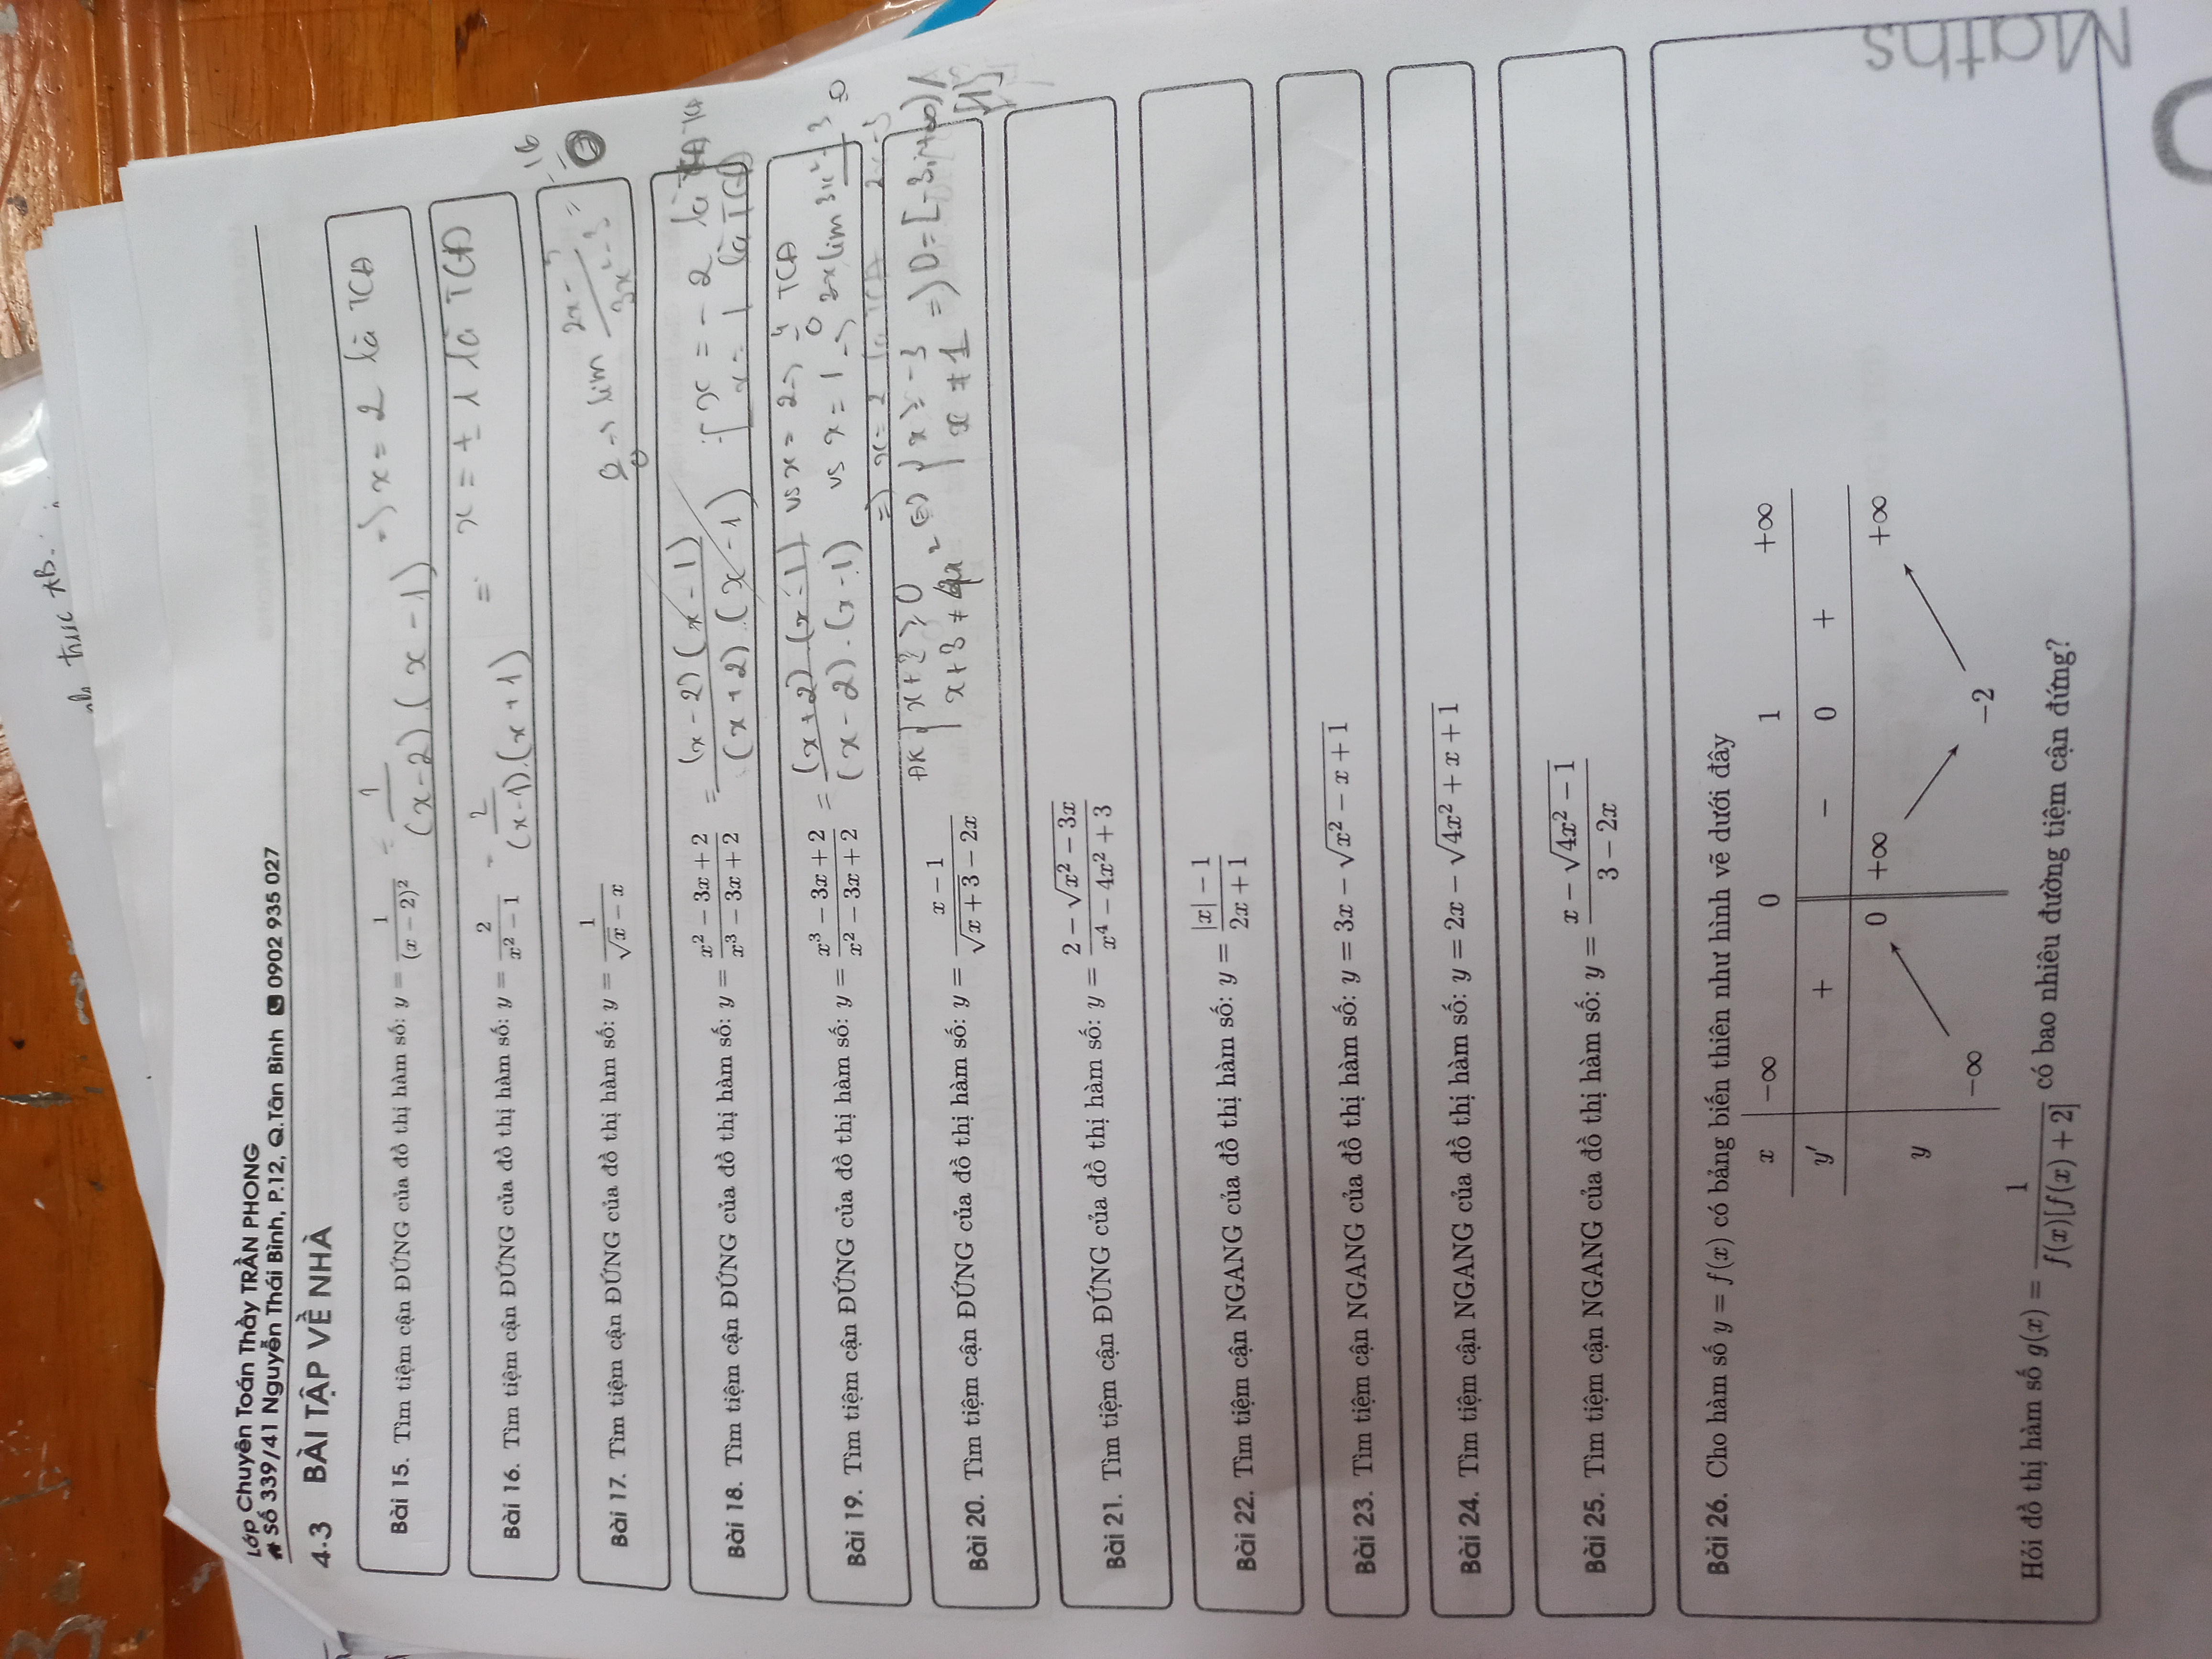 trục AB.
Lớp Chuyên Toán Thầy TRẦN PHONG
Số 339/41 Nguyễn Thái Bình, P.12, Q.Tân Bình 0902 935 027
4.3 BÀI TẬP VỀ NHÀ
Bài 15. Tìm tiệm cận ĐỨNG của đồ thị hàm số: y = 1/(x − 2)² = 1/((x-2).(x-1)) => x = 2 là TCĐ
Bài 16. Tìm tiệm cận ĐỨNG của đồ thị hàm số: y = 2/(x² − 1) = 2/((x-1).(x+1)) = x = ± 1 là TCĐ
Bài 17. Tìm tiệm cận ĐỨNG của đồ thị hàm số: y = 1/(√x − x)
0/0 -> lim (2x-3)/(3x²-3) =
Bài 18. Tìm tiệm cận ĐỨNG của đồ thị hàm số: y = (x² − 3x + 2)/(x³ − 3x + 2) = ((x-2)(x-1))/((x+2).(x-1))
x = -2 là TCĐ
x = 1 là TCĐ
Bài 19. Tìm tiệm cận ĐỨNG của đồ thị hàm số: y = (x³ − 3x + 2)/(x² − 3x + 2) = ((x+2).(x-1))/((x-2).(x-1))
vs x = 2 -> 4/0 TCĐ
vs x = 1 -> lim (3x²-3)/(2x-3) = 0
=> x = 2 là TCĐ
Bài 20. Tìm tiệm cận ĐỨNG của đồ thị hàm số: y = (x − 1)/(√(x + 3) − 2x)
ĐK { x+3 ≥ 0 <=> { x ≥ -3 => D = [-3;+∞) \ {1}
x+3 ≠ 4x² x ≠ 1
Bài 21. Tìm tiệm cận ĐỨNG của đồ thị hàm số: y = (2 − √(x² − 3x))/(x⁴ − 4x² + 3)
Bài 22. Tìm tiệm cận NGANG của đồ thị hàm số: y = (|x| − 1)/(2x + 1)
Bài 23. Tìm tiệm cận NGANG của đồ thị hàm số: y = 3x − √(x² − x + 1)
Bài 24. Tìm tiệm cận NGANG của đồ thị hàm số: y = 2x − √(4x² + x + 1)
Bài 25. Tìm tiệm cận NGANG của đồ thị hàm số: y = (x − √(4x² − 1))/(3 − 2x)
Bài 26. Cho hàm số y = f(x) có bảng biến thiên như hình vẽ dưới đây
x −∞ 0 1 +∞
y′ + − 0 +
0 +∞ +∞
y
−∞ −2
Hỏi đồ thị hàm số g(x) = 1/(f(x)[f(x) + 2]) có bao nhiêu đường tiệm cận đứng?
Maths